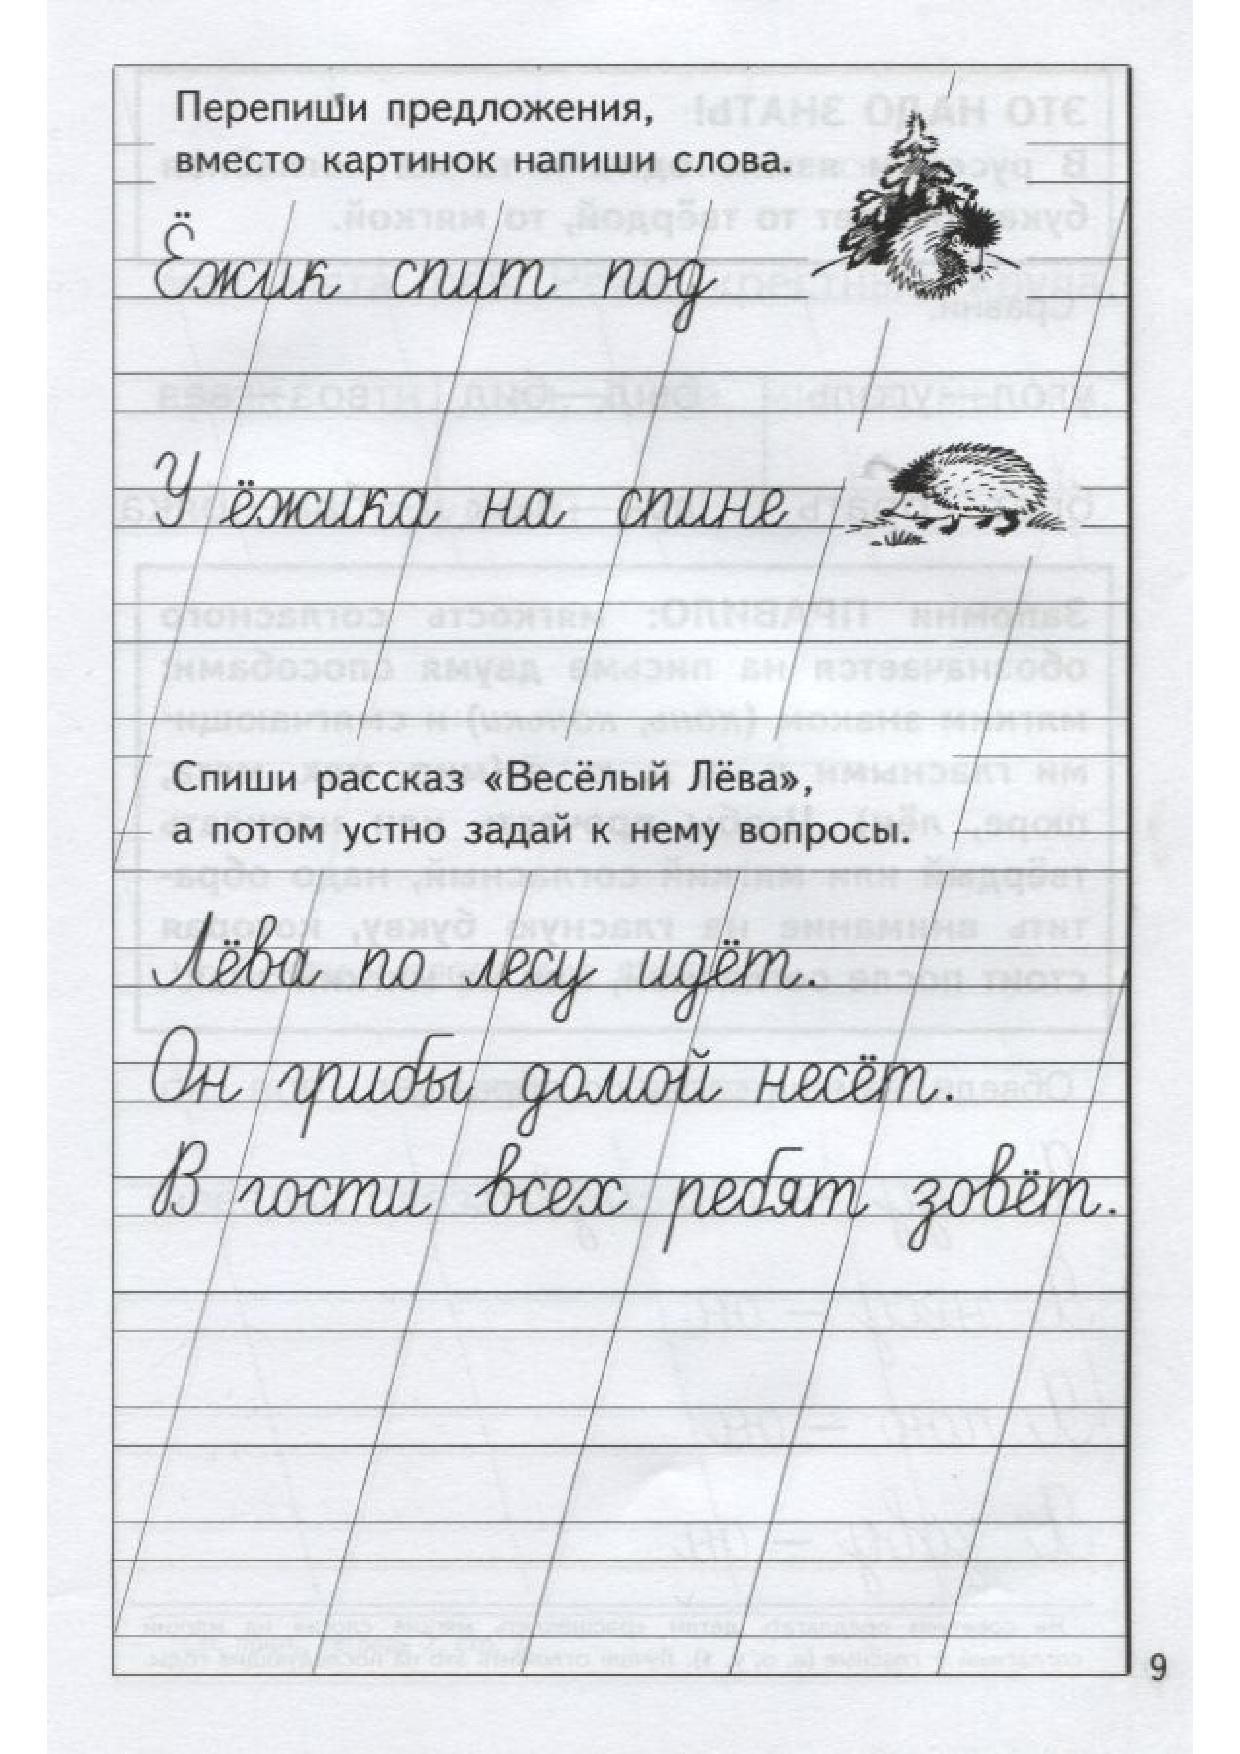 Перепиши предложения,
вместо картинок напиши слова.
Ёжик спит под
У ёжика на спине
Спиши рассказ «Весёлый Лёва»,
а потом устно задай к нему вопросы.
Лёва по лесу идёт.
Он грибы домой несёт.
В гости всех ребят зовёт.
9